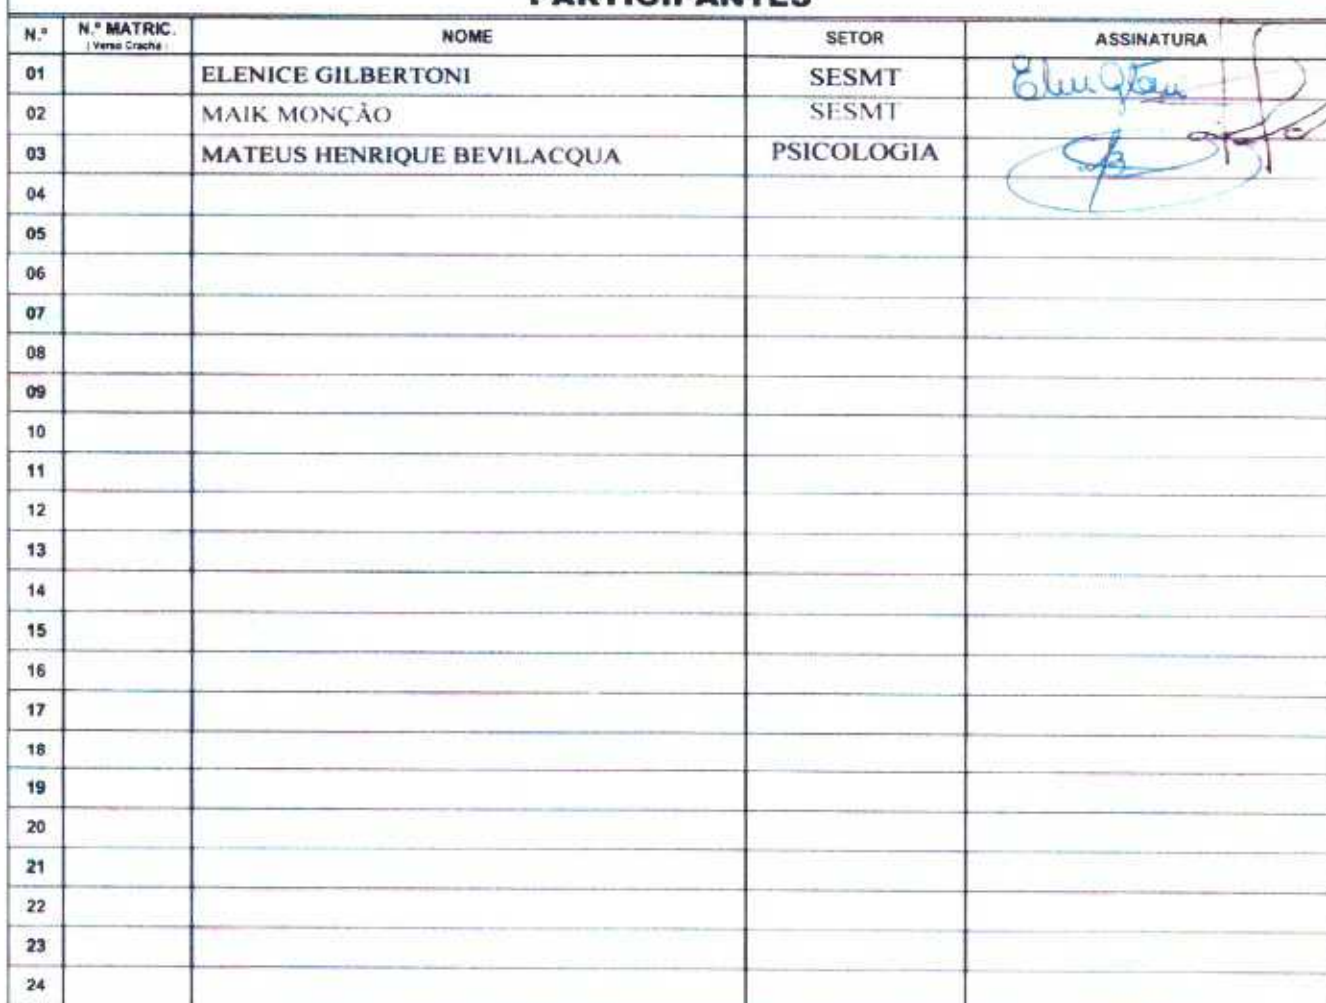 PARTICIPANTES
N.º N.º MATRIC. NOME SETOR ASSINATURA
( Verso Crachá )
01 ELENICE GILBERTONI SESMT
02 MAIK MONÇÃO SESMT
03 MATEUS HENRIQUE BEVILACQUA PSICOLOGIA
04
05
06
07
08
09
10
11
12
13
14
15
16
17
18
19
20
21
22
23
24